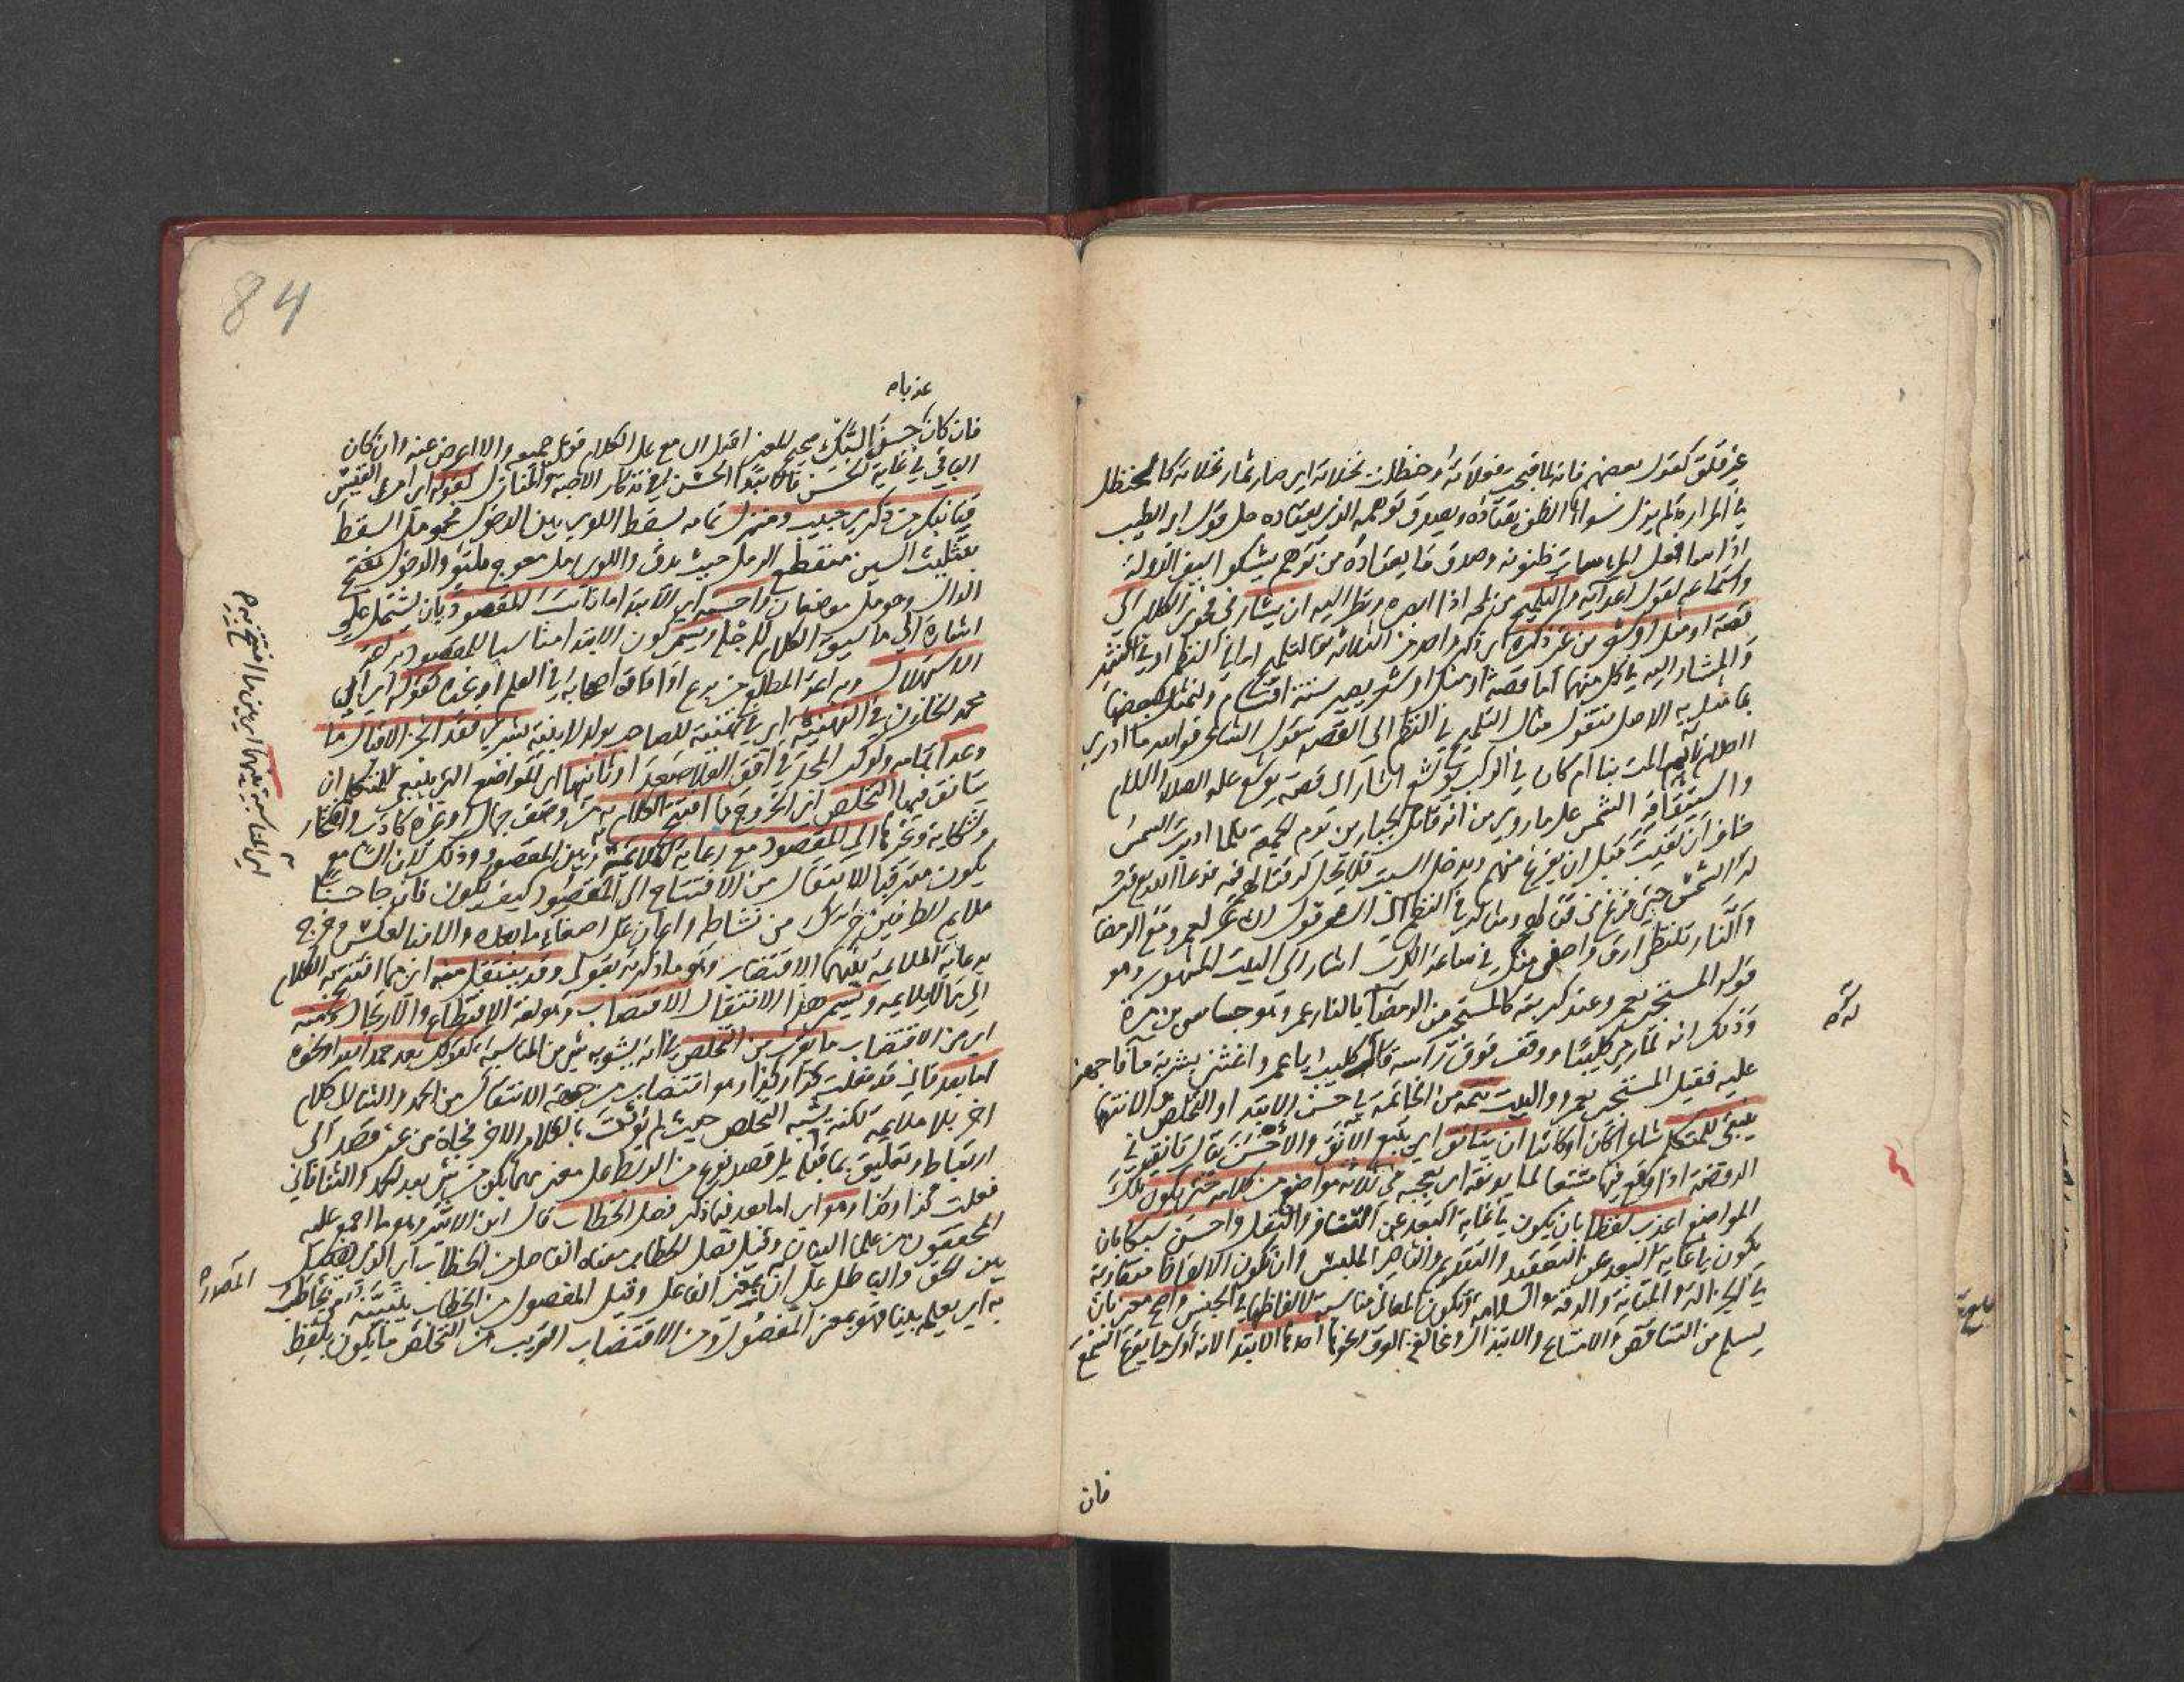 غير قلق كقول بعضهم فانه لما قبحت فعلاته وحنظلت نخلاته اى صار ثمار نخلاته كالحنظل
في المرارة لم يزل سوء الظن يقتاده ويصدق توهمه الذي يعتاده حل قول ابي الطيب
اذا ساء فعل المرء ساءت ظنونه وصدق ما يعتاده من توهم يشكو سيف الدولة
واستماعه لقول اعدائه والتلميح من لمحه اذا ابصره ونظر اليه ان يشار في فحوى الكلام الى
قصة او مثل او شعر من غير ذكره اى ذكر واحد من الثلاثة فالتلميح اما في النظم او في النثر
والمشار اليه في كل منهما اما قصة او مثل او شعر يصير ستة اقسام ولنمثل لبعضها
بما مثل به الاصل فنقول مثال التلميح في النظم الى القصة قول الشاعر فوالله ما ادري
ااحلام نائم المت بنا ام كان في الركب يوشع اشار الى قصة يوشع عليه الصلاة والسلام
واستيقافه الشمس على ما روي من انه قاتل الجبارين يوم الجمعة فلما ادبرت الشمس
خاف ان تغيب قبل ان يفرغ منهم ويدخل السبت فلا يحل له قتالهم فيه فدعا الله فرد
له الشمس حتى فرغ من قتالهم ومثاله في النظم الى الشعر قول ابي تمام لعمرو مع الرمضاء
والنار تلتظي ارق واحفى منك في ساعة الكرب اشار الى البيت المشهور وهو
قوله المستجير بعمرو عند كربته كالمستجير من الرمضاء بالنار عمرو هو جساس بن مرة
وذلك انه لما رمى كليبا ووقف فوق راسه قال له كليب يا عمرو اغثني بشربة ماء فاجهز
عليه فقيل المستجير بعمرو البيت تتمة من الخاتمة في حسن الابتداء والتخلص والانتهاء
ينبغي للمتكلم شاعرا كان او كاتبا ان يتانق اى يتبع الانق والاحسن يقال تانق في
الروضة اذا وقع فيها متتبعا لما يونقه اى يعجبه في ثلاثة مواضع من كلامه حتى يكون تلك
المواضع اعذب لفظا بان يكون في غاية البعد عن التنافر والثقل واحسن سبكا بان
يكون في غاية البعد عن التعقيد والتقديم والتاخير الملبس وان تكون الالفاظ متقاربة
في الجزالة والمتانة والرقة والسلاسة وتكون المعاني مناسبة لالفاظها في الجنس واصح معنى بان
يسلم من التناقض والامتناع والابتذال ومخالفة العرف ونحوها احدها الابتداء لانه اول ما يقرع السمع
فان
عذبا
فان كان حسن السبك صحيح المعنى اقبل السامع على الكلام فوعى جميعه والا اعرض عنه وان كان
الباقي في غاية الحسن فالابتداء الحسن في تذكار الاحبة والمنازل كقوله اى امرئ القيس
قفا نبك من ذكرى حبيب ومنزل تمامه بسقط اللوى بين الدخول فحومل السقط
بتثليث السين منقطع الرمل حيث يدق واللوى رمل معوج ملتو والدخول بفتح
الدال وحومل موضعان واحسنه اى الابتداء ما ناسب المقصود بان يشتمل على
اشارة الى ما سيق الكلام لاجله ويسمى كون الابتداء مناسبا للمقصود براعة
الاستهلال وبراعة المطلع من برع اذا فاق اصحابه في العلم او غيره كقوله اى ابي
محمد الخازن في التهنئة اى في تهنئة الصاحب بولد لابنته بشرى فقد انجز الاقبال ما
وعدا تمامه وكوكب المجد في افق العلا صعدا وثانيها اى المواضع التي ينبغي للمتكلم ان
يتانق فيها التخلص اى الخروج مما افتتح الكلام به من وصف جمال او غيره كادب وافتخار
وشكاية وغيرها الى المقصود مع رعاية الملايمة بين المقصود وذلك لان السامع
يكون مترقبا للانتقال من الافتتاح الى المقصود كيف يكون فان جاء حسنا
ملايم الطرفين حرك من نشاطه واعان على اصغاء ما بعده والا فبالعكس وخرج
برعاية الملايمة بينهما الاقتضاب وهو ما ذكره بقوله وقد ينتقل منه اى مما افتتح به الكلام
الى ما لا يلايمه ويسمى هذا الانتقال الاقتضاب وهو لغة الاقتطاع والارتجال ومنه
اى من الاقتضاب ما يقرب من التخلص في انه يشوبه شئ من المناسبة كقولك بعد حمد الله ونحوه
اما بعد فاني قد فعلت كذا وكذا وهو اقتضاب من جهة الانتقال من الحمد والثناء الى كلام
اخر بلا ملايمة لكنه يشبه التخلص حيث لم يؤت بالكلام الاخر فجاة من غير قصد الى
ارتباط وتعليق بما قبله بل قصد نوع من الربط على معنى مهما يكن من شئ بعد الحمد والثنا فاني
فعلت كذا وكذا وهو اى اما بعد فيما ذكر فصل الخطاب قال ابن الاثير وهو ما اجمع عليه
المحققون من علماء البيان وقيل فصل الخطاب معناه الفاصل من الخطاب اى الذي يفصل
بين الحق والباطل على ان المصدر بمعنى الفاعل وقيل المفصول من الخطاب يتبينه من يخاطب
به اى يعلمه بينا فهو بمعنى المفعول ومن الاقتضاب القريب من التخلص ما يكون بلفظ
المصدر